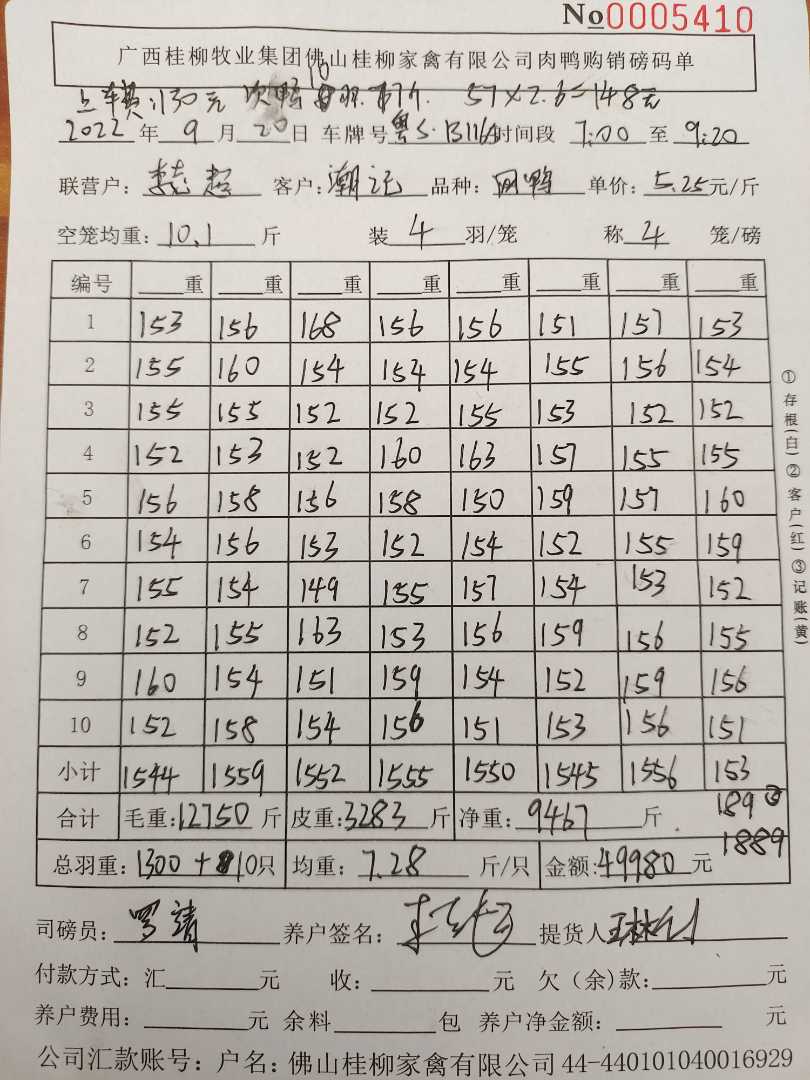 No0005410
广西桂柳牧业集团佛山桂柳家禽有限公司肉鸭购销磅码单
上车费:130元 次鸭 10羽 57×2.6=148元
2022年9月20日 车牌号粤S·B116 时间段 7:00 至 9:20
联营户:李志超 客户:潮记 品种: 单价:5.25元/斤
空笼均重:10.1斤 装4羽/笼 称4笼/磅
编号 重 重 重 重 重 重 重 重
1 153 156 168 156 156 151 157 153
2 155 160 154 154 154 155 156 154
3 155 155 152 152 155 153 152 152
4 152 153 152 160 163 157 155 155
5 156 158 156 158 150 159 157 160
6 154 156 153 152 154 152 155 159
7 155 154 149 155 157 154 153 152
8 152 155 163 153 156 159 156 155
9 160 154 151 159 154 152 159 156
10 152 158 154 156 151 153 156 151
小计 1544 1559 1552 1555 1550 1545 1556 153
合计 毛重:12750斤 皮重:3283斤 净重:9467斤 189③
1889
总羽重:1300+10只 均重:7.28斤/只 金额:49980元
司磅员:罗靖 养户签名: 提货人
付款方式:汇 元 收: 元 欠(余)款: 元
养户费用: 元 余料 包 养户净金额: 元
公司汇款账号:户名:佛山桂柳家禽有限公司44-440101040016929
①存根(白)②客户(红)③记账(黄)